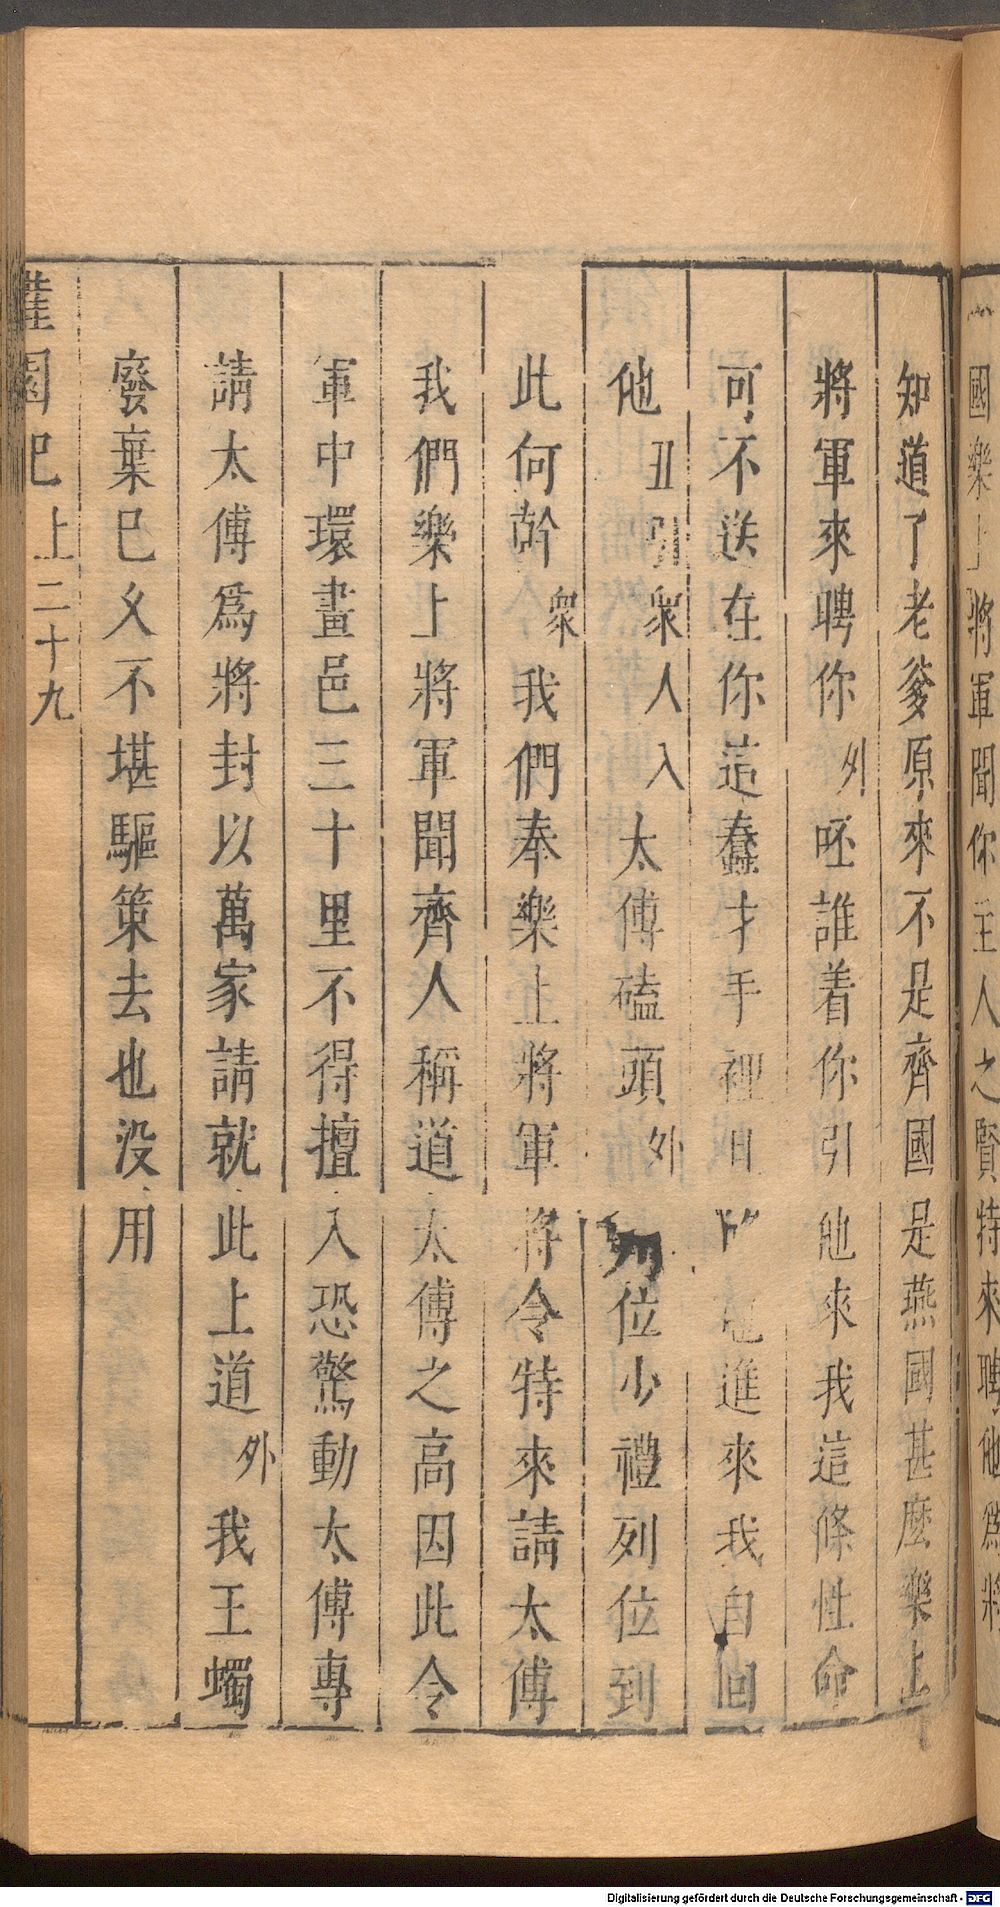 國樂上將軍聞你主人之賢特來聘他爲將
知道了老爹原來不是齊國是燕國甚麼樂上
將軍來聘你外呸誰着你引他來我這條性命
可不送在你這蠢才手裡進來我自回
他丑引衆人入太傅磕頭外列位少禮列位到
此何幹衆我們奉樂上將軍將令特來請太傅
我們樂上將軍聞齊人稱道太傅之高因此令
軍中環畫邑三十里不得擅入恐驚動太傅專
請太傅爲將封以萬家請就此上道外我王蠋
廢棄已久不堪驅策去也没用
灌園記 上二十九
Digitalisierung gefördert durch die Deutsche Forschungsgemeinschaft - DFG